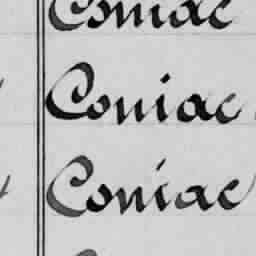 Coniac
Coniac
Coniac